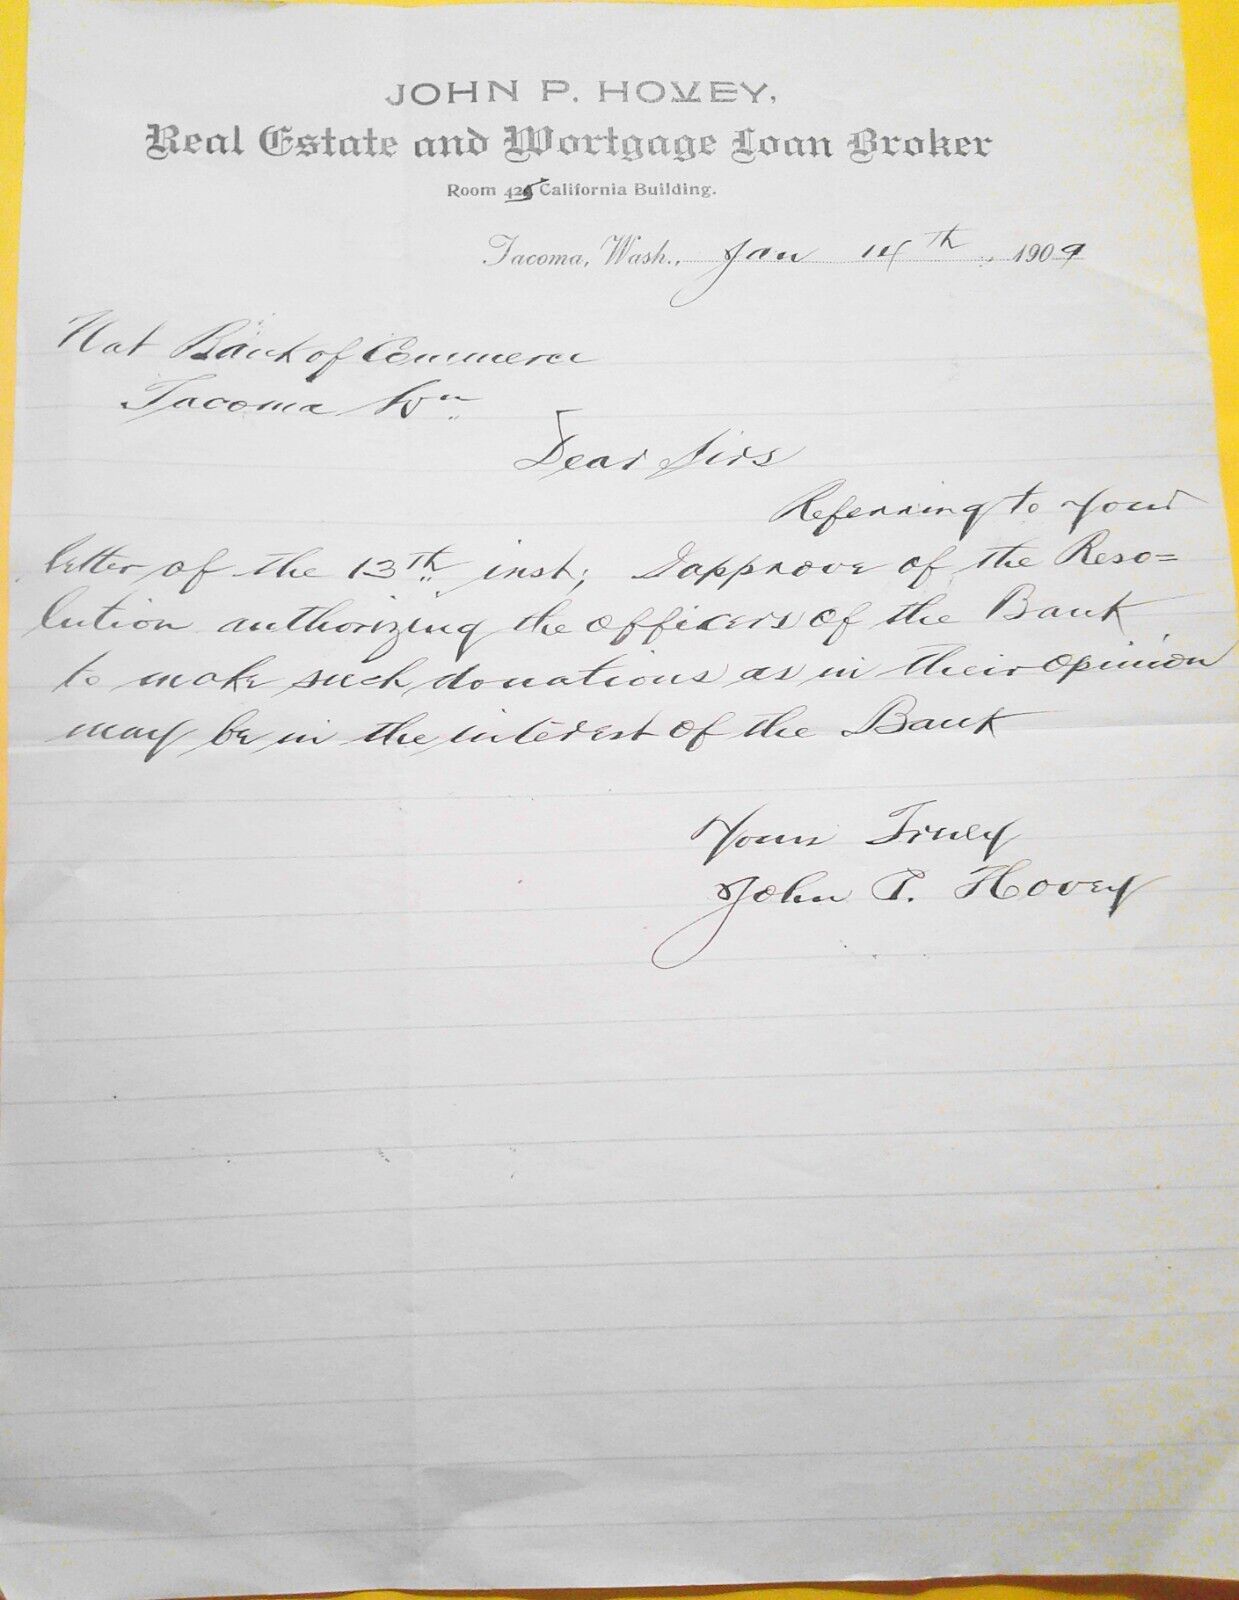 JOHN P. HOVEY,
Real Estate and Mortgage Loan Broker
Room 425 California Building.
Tacoma, Wash., Jan 14th, 1909
Nat Bank of Commerce
Tacoma Wn
Dear Sirs
Referring to Your
letter of the 13th inst; I approve of the Reso=
lution authorizing the officers of the Bank
to make such donations as in their opinion
may be in the interest of the Bank
Yours Truly
John P. Hovey